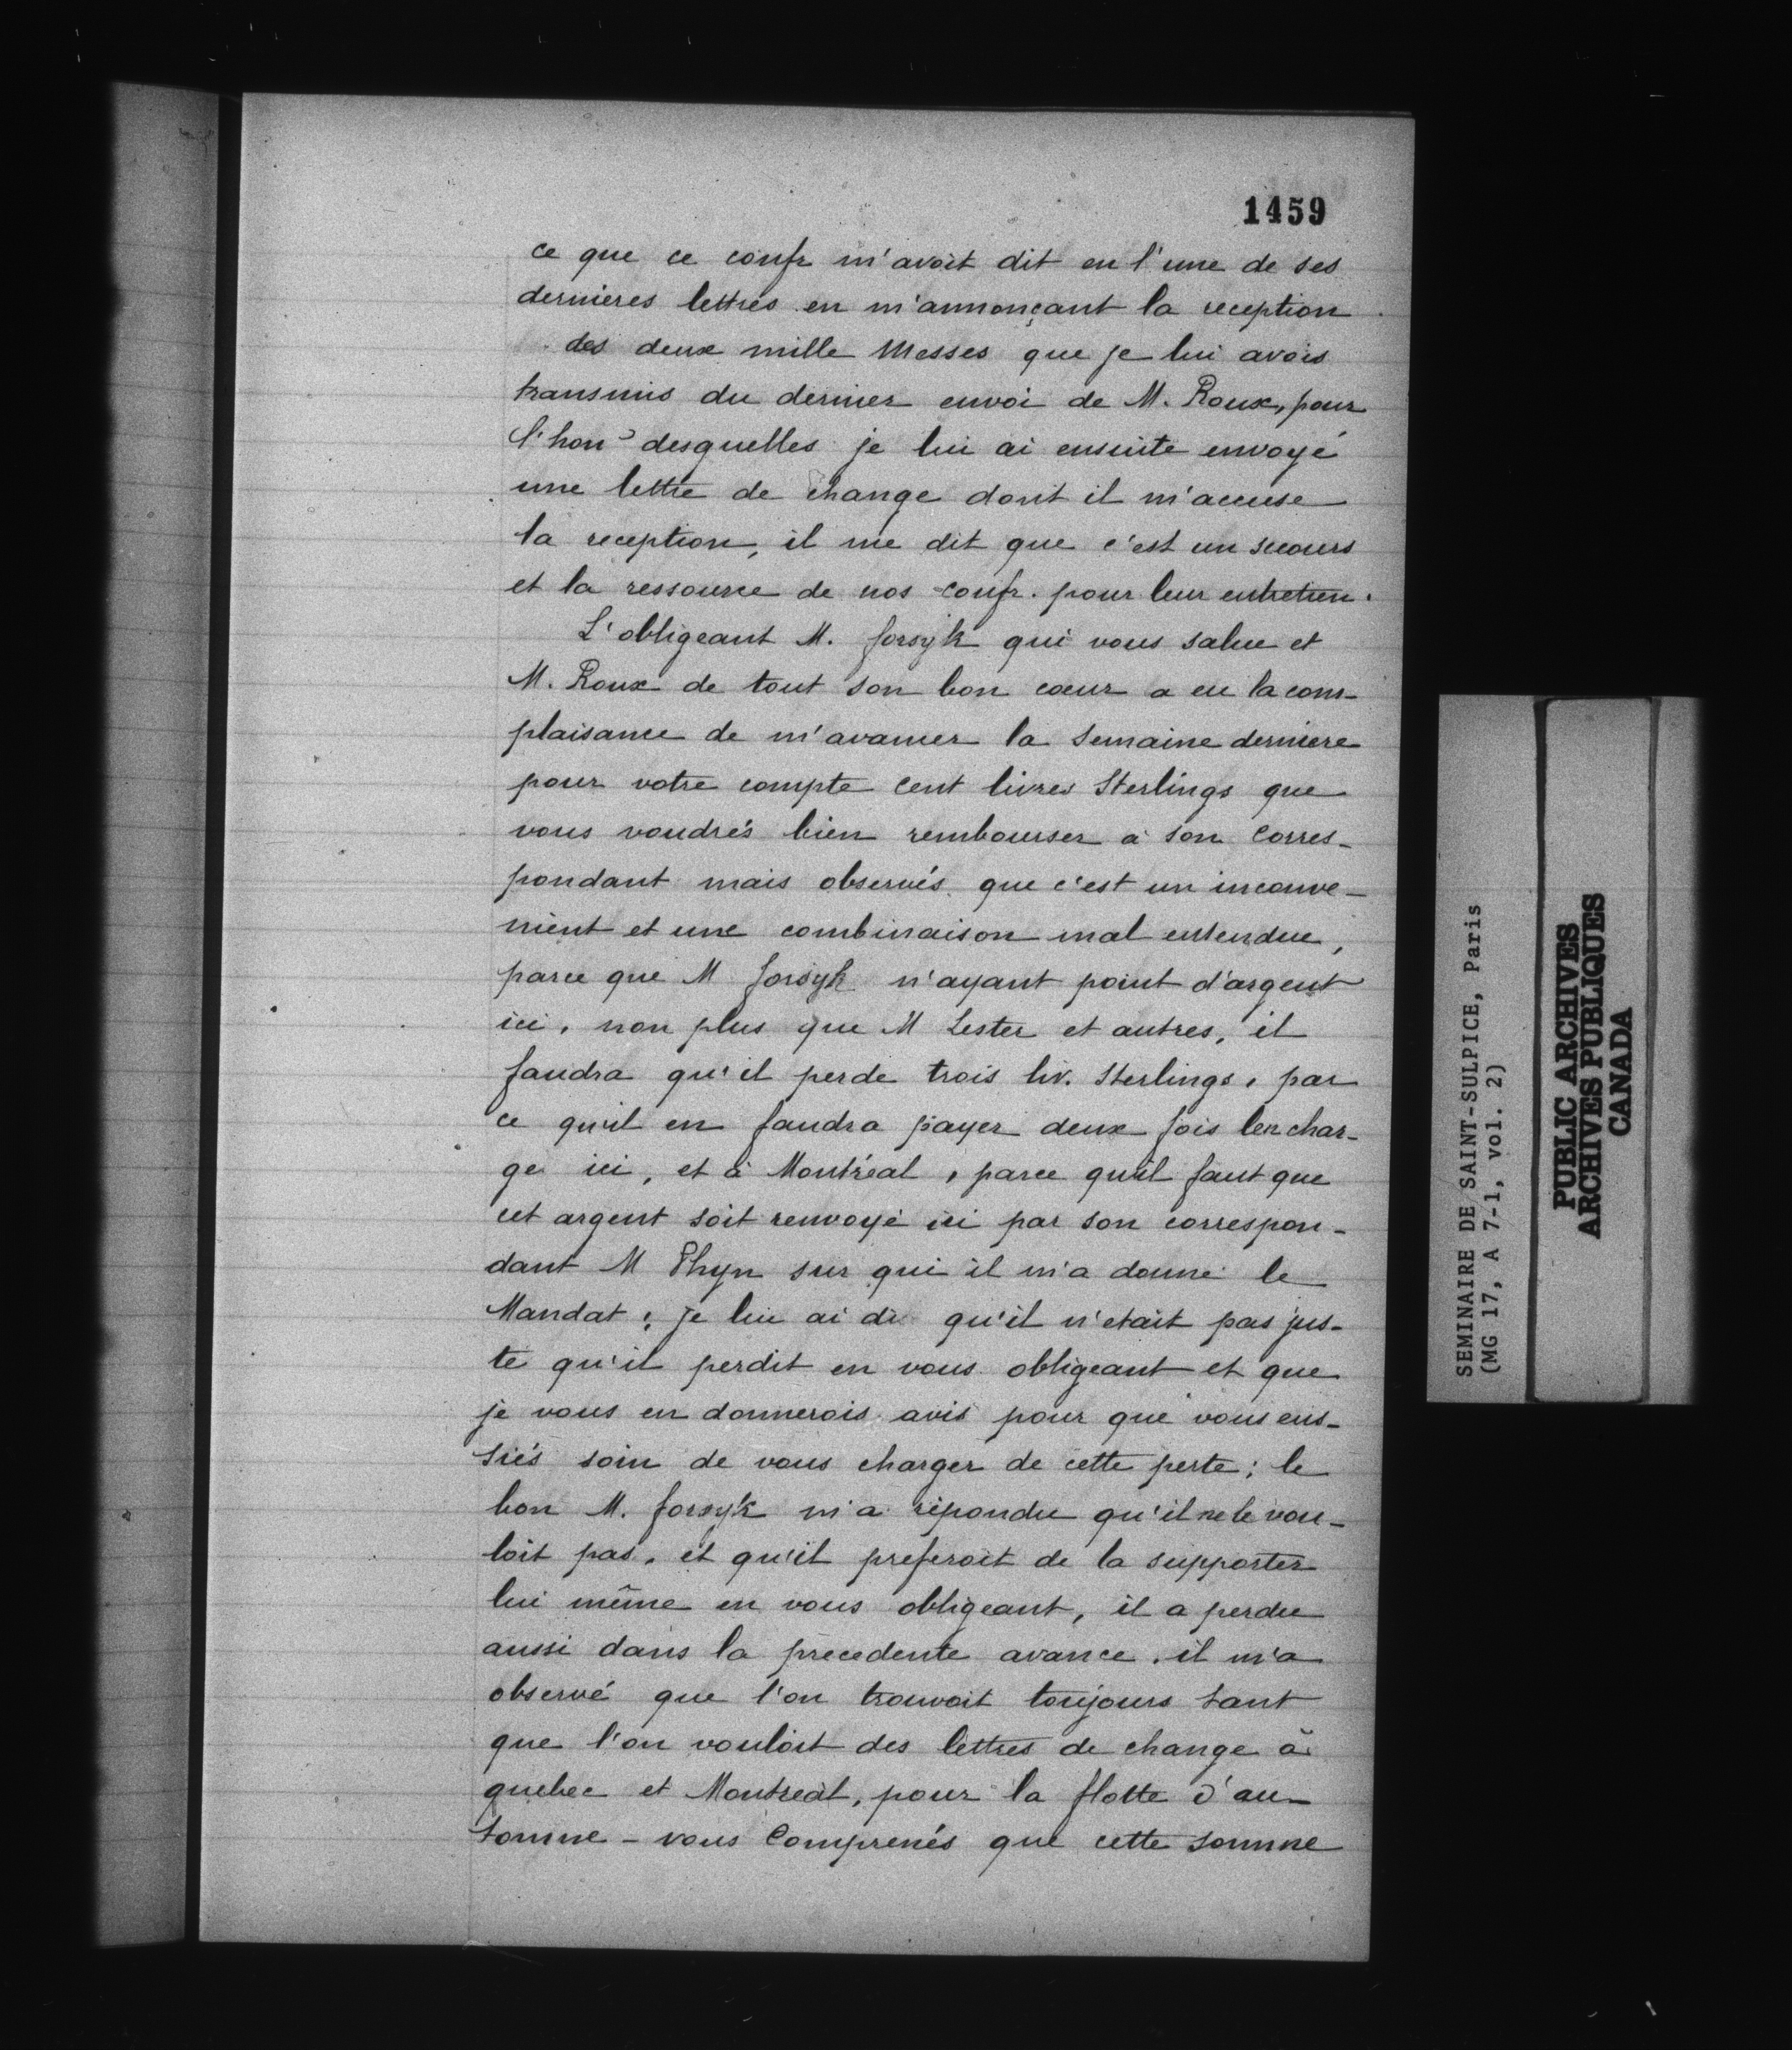 1459
ce que ce confr m'avoit dit en l'une de ses
dernieres lettres en m'annonçant la reception
des deux mille Messes que je lui avois
transmis du dernier envoi de M. Roux, pour
l'hon desquelles je lui ai ensuite envoyé
une lettre de change dont il m'accuse
la reception, il me dit que c'est un secours
et la ressource de nos confr. pour leur entretien.
L'obligeant M. forsyk qui vous salue et
M. Roux de tout son bon cœur a eu la com-
plaisance de m'avancer la semaine derniere
pour votre compte cent livres Sterlings que
vous voudrés bien rembourser à son corres-
pondant mais observés que c'est un inconve-
nient et une combinaison mal entendue,
parce que M forsyk n'ayant point d'argent
ici, non plus que M Lester et autres, il
faudra qu'il perde trois liv. Sterlings, par
ce qu'il en faudra payer deux fois len char-
ge ici, et à Montréal, parce qu'il faut que
cet argent soit renvoyé ici par son correspon-
dant M Phyn sur qui il m'a donné le
Mandat; je lui ai di qu'il n'etait pas jus-
te qu'il perdit en vous obligeant et que
je vous en donnerois avis pour que vous eus-
siés soin de vous charger de cette perte; le
bon M. forsyk m'a répondu qu'il ne le vou-
loit pas, et qu'il preferoit de la supporter
lui même en vous obligeant, il a perdu
aussi dans la précedente avance. il m'a
observé que l'on trouvoit toujours tant
que l'on vouloit des lettres de change à
quebec et Montreal, pour la flotte d'au-
tomne - vous Comprenés que cette somme
SEMINAIRE DE SAINT-SULPICE, Paris
(MG 17, A 7-1, vol. 2)
PUBLIC ARCHIVES
ARCHIVES PUBLIQUES
CANADA